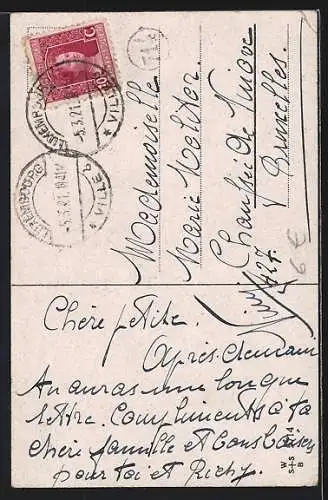 LUXEMBOURG
VILLE
5.3.21
LUXEMBOURG
VILLE
5.3.21
Mademoiselle
Marie Molitor
Chaussée de Ninove
427
Bruxelles.
6 €
Chère petite.
Après-demain
tu auras une longue
lettre. Compliments à ta
chère famille et bons baisers
pour toi et Richy.
W
S+S
B